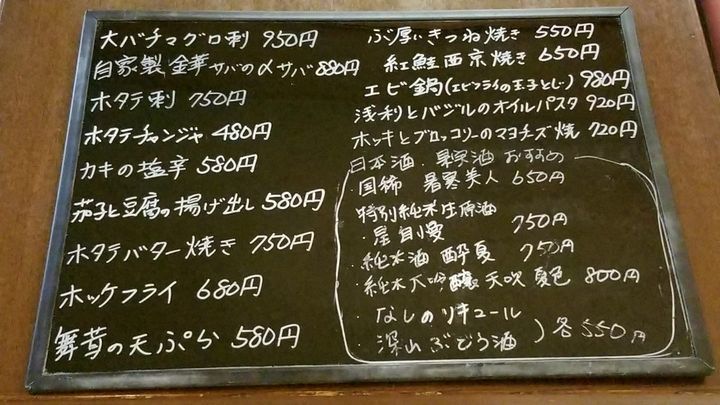 大バチマグロ刺 950円
自家製 金華サバの〆サバ 880円
ホタテ刺 750円
ホタテチャンジャ 480円
カキの塩辛 580円
茄子と豆腐の揚げ出し 580円
ホタテバター焼き 750円
ホッケフライ 680円
舞茸の天ぷら 580円
ぶ厚いきつね焼き 550円
紅鮭西京焼き 650円
エビ鍋(エビフライの玉子とじ) 980円
浅利とバジルのオイルパスタ 920円
ホッキとブロッコリーのマヨチーズ焼 720円
日本酒・果実酒 おすすめ
国稀 暑寒美人 650円
特別純米生原酒
・星自慢 750円
・純米酒 酔夏 750円
・純米大吟醸 天吹 夏色 800円
・なしのリキュール
・深山ぶどう酒 ) 各550円